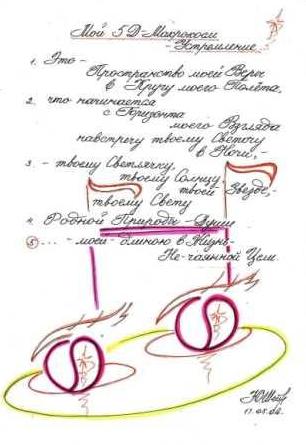 Мой 5 Д-Макрокосм
- Устремление.
1. Это -
Пространство моей Веры
в Кругу моего Полёта,
2. что начинается
с Горизонта
моего Взгляда
навстречу твоему Светочу
в Ночи,-
3. - твоему Светлячку,
твоему Солнцу,
твоей Звезде,-
твоему Свету
4. Родной Природы-Души
5 ... - моей - длиною в Жизнь-
Не-чаянной Цели.